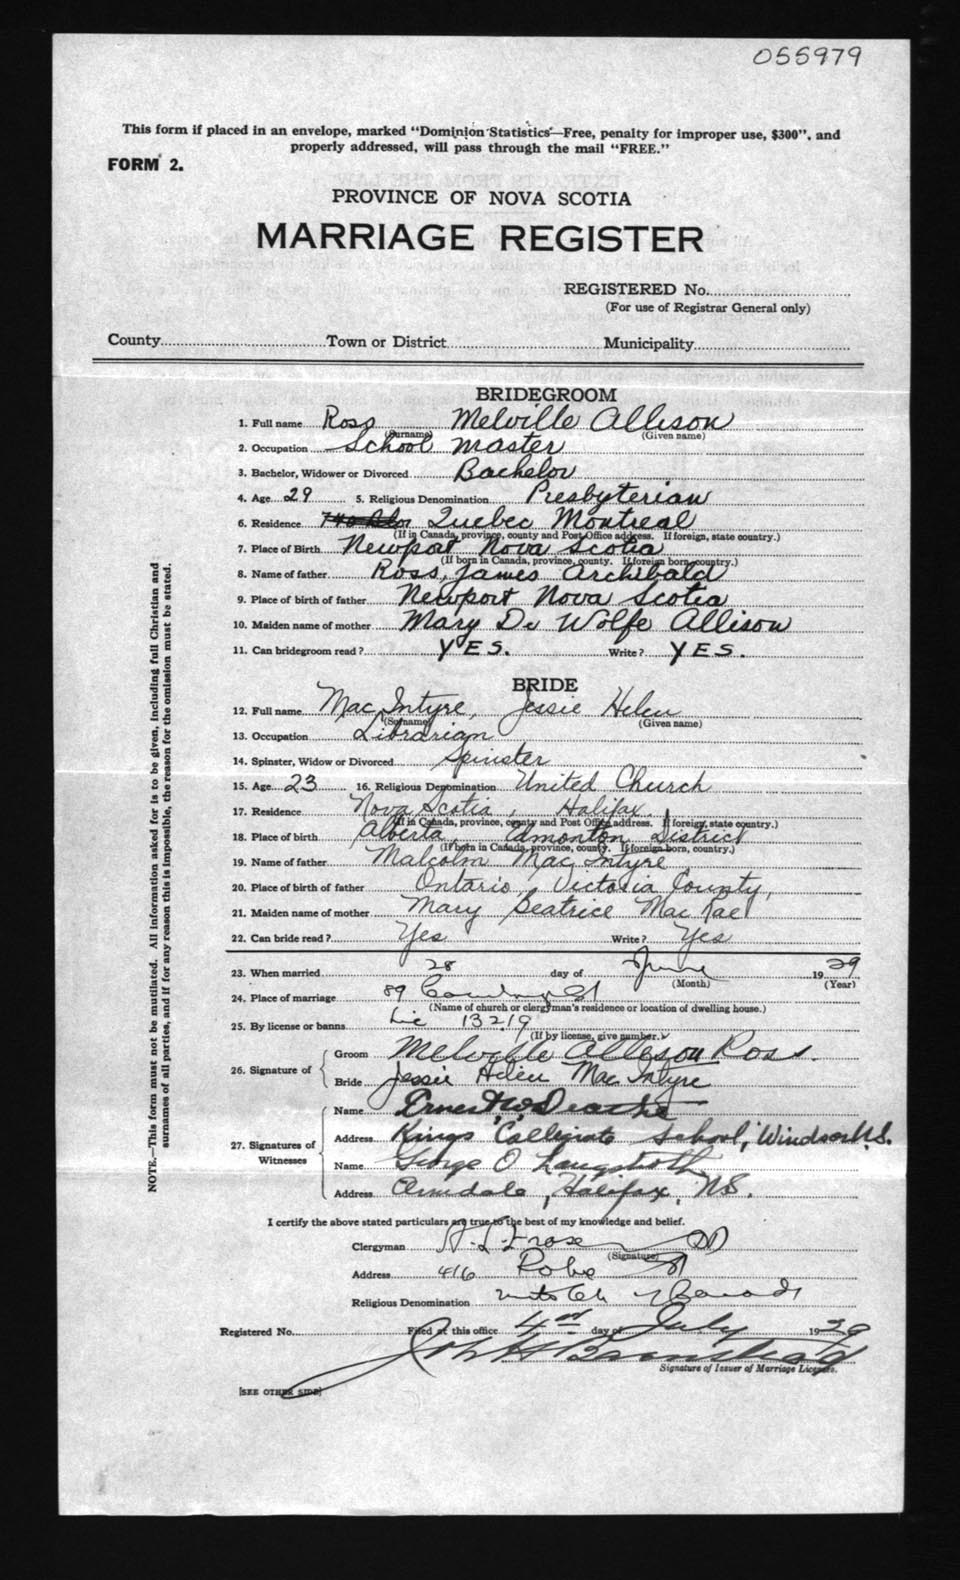 055979
This form if placed in an envelope, marked "Dominion Statistics—Free, penalty for improper use, $300", and
properly addressed, will pass through the mail "FREE."
FORM 2.
PROVINCE OF NOVA SCOTIA
MARRIAGE REGISTER
REGISTERED No.
(For use of Registrar General only)
County Town or District Municipality
BRIDEGROOM
1. Full name Ross Melville Allison
(Surname) (Given name)
2. Occupation School master
3. Bachelor, Widower or Divorced Bachelor
4. Age 29 5. Religious Denomination Presbyterian
6. Residence Quebec Montreal
(If in Canada, province, county and Post Office address. If foreign, state country.)
7. Place of Birth Newport Nova Scotia
(If born in Canada, province, county. If foreign born, country.)
8. Name of father Ross, James Archibald
9. Place of birth of father Newport Nova Scotia
10. Maiden name of mother Mary De Wolfe Allison
11. Can bridegroom read? YES. Write? YES.
BRIDE
12. Full name Mac Intyre, Jessie Helen
(Surname) (Given name)
13. Occupation Librarian
14. Spinster, Widow or Divorced Spinster
15. Age 23 16. Religious Denomination United Church
17. Residence Nova Scotia, Halifax.
(If in Canada, province, county and Post Office address. If foreign, state country.)
18. Place of birth Alberta, Edmonton District
(If born in Canada, province, county. If foreign born, country.)
19. Name of father Malcolm Mac Intyre
20. Place of birth of father Ontario, Victoria County,
21. Maiden name of mother Mary Beatrice Mac Rae
22. Can bride read? Yes Write? Yes
23. When married 28 day of June 1929
(Month) (Year)
24. Place of marriage 89 St
(Name of church or clergyman's residence or location of dwelling house.)
25. By license or banns Lic 13219
(If by license, give number.)
26. Signature of Groom Melville Allison Ross.
Bride Jessie Helen Mac Intyre
27. Signatures of Witnesses
Name Ernest W.
Address Kings Collegiate School, Windsor N.S.
Name George O Langstroth
Address Armdale, Halifax, N.S.
I certify the above stated particulars are true to the best of my knowledge and belief.
Clergyman
(Signature)
Address 416 Robie St
Religious Denomination United Ch of Canada
Registered No. Filed at this office 4th day of July 1929
Signature of Issuer of Marriage Licenses.
[SEE OTHER SIDE]
NOTE.—This form must not be mutilated. All information asked for is to be given, including full Christian and
surnames of all parties, and if for any reason this is impossible, the reason for the omission must be stated.